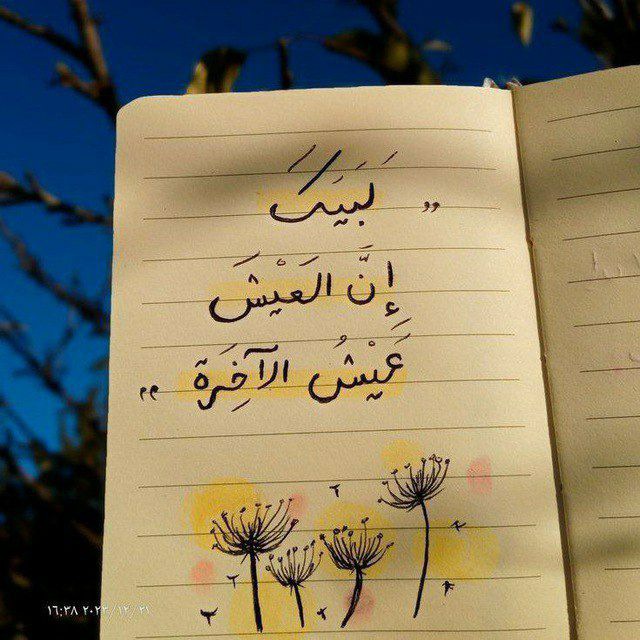 „ لَبَيَكَ
إِنَّ العَيْشَ
عَيْشُ الآخِرَة „
١٦:٣٨ ٢٠٢٣/١٢/٢١